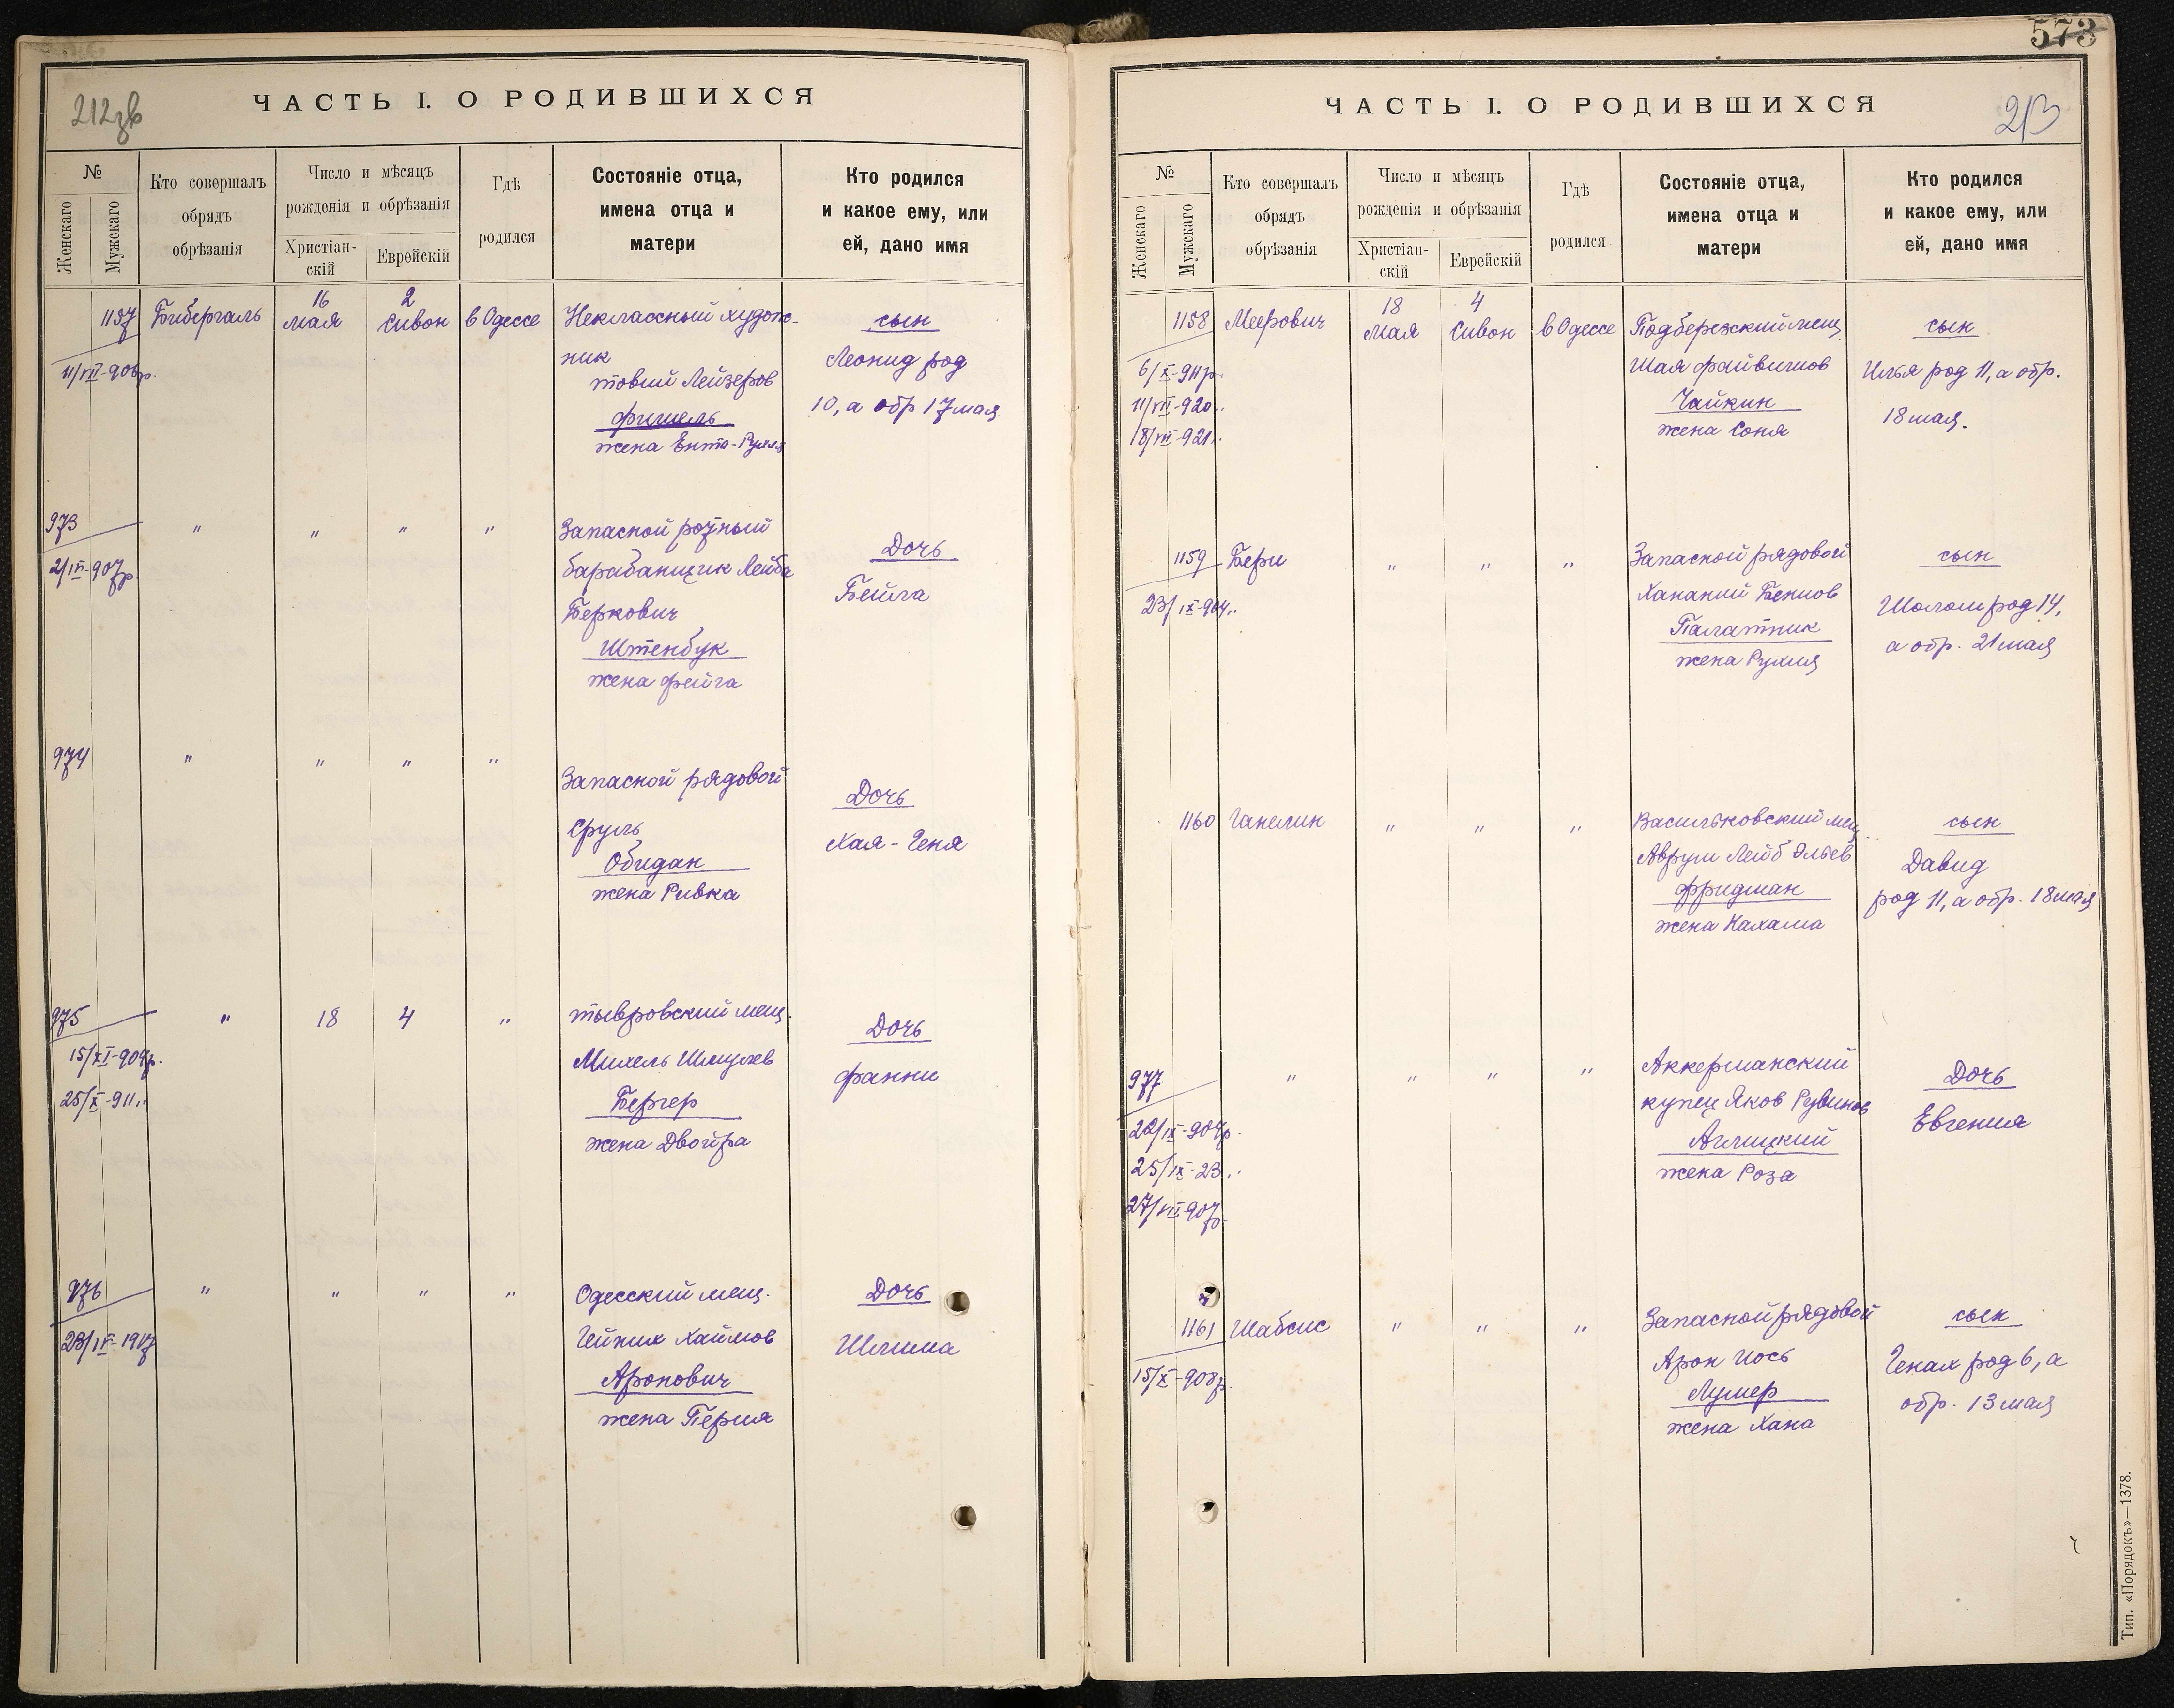 573
212зв
ЧАСТЬ I. О РОДИВШИХСЯ
№
Женскаго
Мужскаго
Кто совершалъ
обрядъ
обрѣзанія
Число и мѣсяцъ
рожденія и обрѣзанія
Христіан-
скій
Еврейскій
Гдѣ
родился
Состояніе отца,
имена отца и
матери
Кто родился
и какое ему, или
ей, дано имя
1157 Бибергаль 16 мая 2 Сивон в Одессе Неклассный худож-
ник
товий Лейзеров
фишель
жена Ента-Рухля
сын
Леонид род
10, а обр 17 мая
11/VII-906р.
973 " " " " Запасной ротный
барабанщик Лейба
Беркович
Штенбук
жена фейга
Дочь
Бейла
2/IX-907р
974 " " " " Запасной рядовой
Сруль
Обидан
жена Ривка
Дочь
Хая-Геня
975 " 18 4 " тывровский мещ.
Михель Шмулев
Бергер
жена Двойра
Дочь
фанни
15/XI-904р.
25/X-911"
976 " " " " Одесский мещ.
Гейних Хаимов
Аронович
жена Перля
Дочь
Шлима
23/IV-1917
213
ЧАСТЬ I. О РОДИВШИХСЯ
№
Женскаго
Мужскаго
Кто совершалъ
обрядъ
обрѣзанія
Число и мѣсяцъ
рожденія и обрѣзанія
Христіан-
скій
Еврейскій
Гдѣ
родился
Состояніе отца,
имена отца и
матери
Кто родился
и какое ему, или
ей, дано имя
1158 Меерович 18 мая 4 Сивон в Одессе Подберезский мещ.
Шая файвишов
Чайкин
жена Соня
сын
Илья род 11, а обр.
18 мая.
6/X-911р.
11/VII-920"
18/VII-921"
1159 Бери " " " Запасной рядовой
Хананий Бенцов
Палатник
жена Рухля
сын
Шолом род 14,
а обр. 21 мая
23/IX-904"
1160 Ганелин " " " Васильковский мещ.
Аврум Лейб Эльев
фридман
жена Нахама
сын
Давид
род 11, а обр. 18 мая
977 " " " " Аккерманский
купец Яков Рувинов
Аглицкий
жена Роза
Дочь
Евгения
22/IX-904р.
25/IX-23"
27/VII-907р
1161 Шабсис " " " Запасной рядовой
Арон Иось
Лумер
жена Хана
сын
Генах род 6, а
обр. 13 мая
15/X-908р.
Тип. «Порядокъ»—1378.